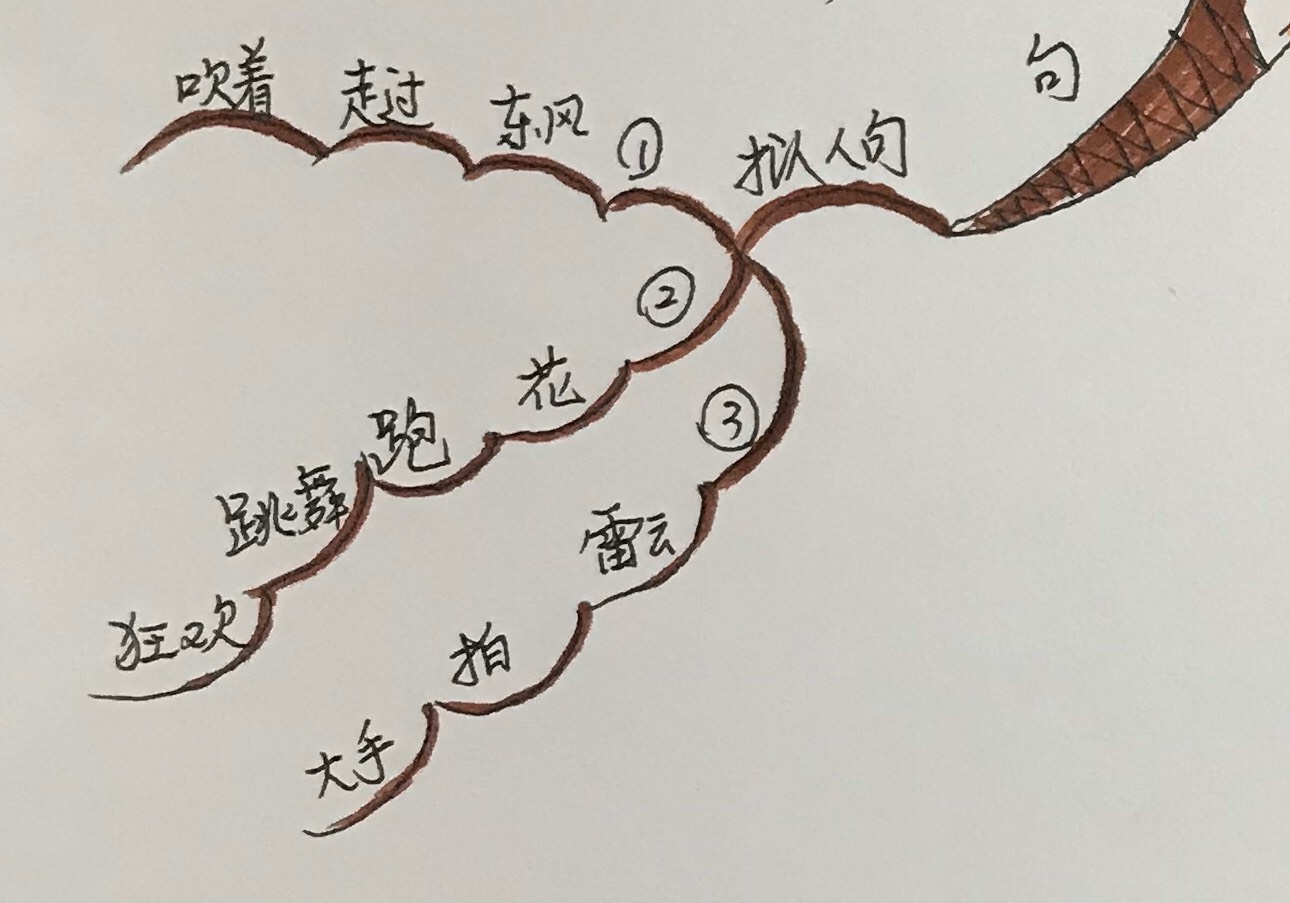 句
拟人句
① 东风 走过 吹着
② 花 跑 跳舞 狂欢
③ 雷云 拍 大手